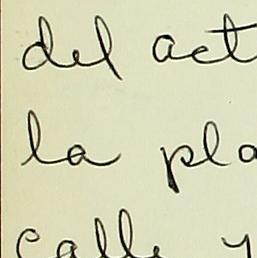 del act
la pla
calle y